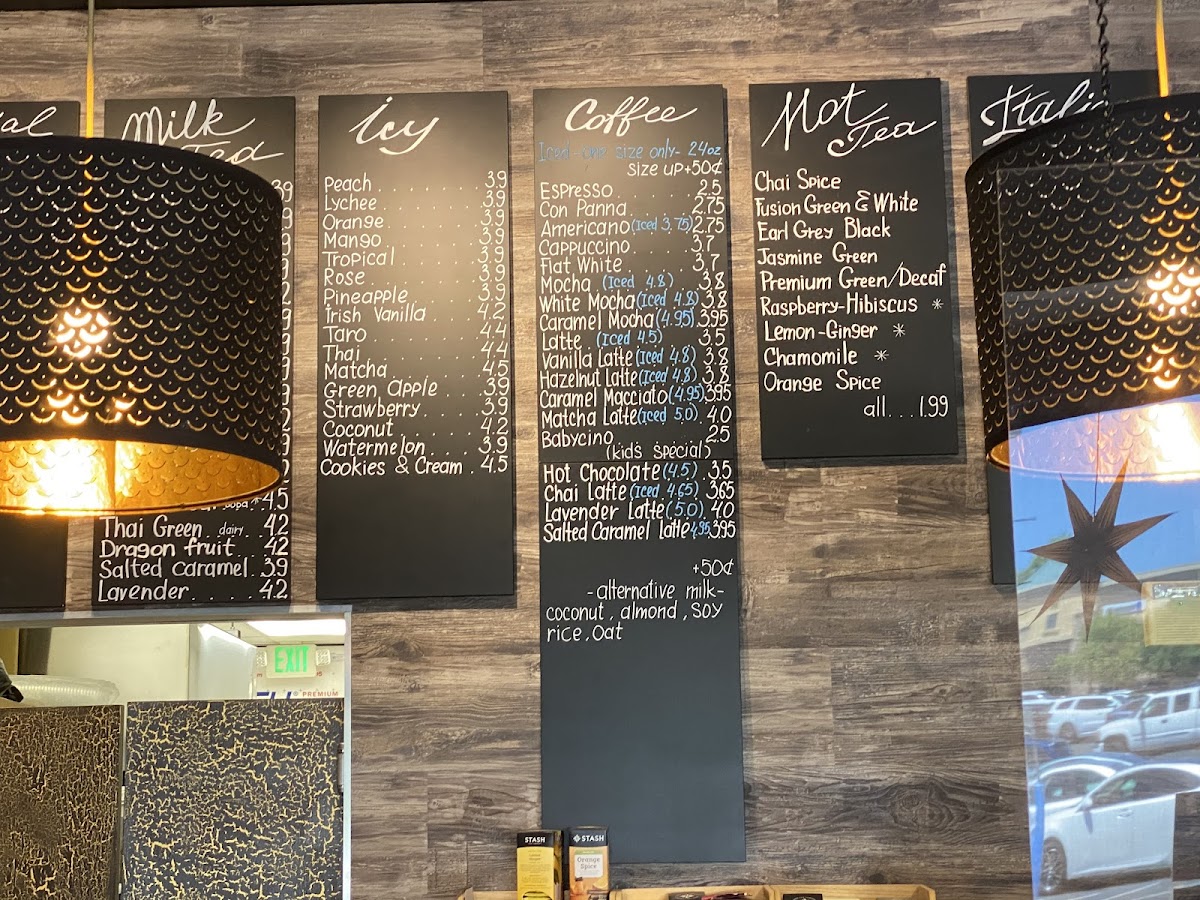 Milk
Tea
4.5
Thai Green dairy 4.2
Dragon fruit 4.2
Salted Caramel 3.9
Lavender 4.2
Icy
Peach 3.9
Lychee 3.9
Orange 3.9
Mango 3.9
Tropical 3.9
Rose 3.9
Pineapple 3.9
Irish Vanilla 4.2
Taro 4.4
Thai 4.4
Matcha 4.5
Green apple 3.9
Strawberry 3.9
Coconut 4.2
Watermelon 3.9
Cookies & Cream 4.5
Coffee
Iced - one size only - 24oz
size up +50¢
Espresso 2.5
Con Panna 2.75
Americano (Iced 3.75) 2.75
Cappuccino 3.7
Flat White 3.7
Mocha (Iced 4.8) 3.8
White Mocha (Iced 4.8) 3.8
Caramel Mocha (4.95) 3.95
Latte (Iced 4.5) 3.5
Vanilla Latte (Iced 4.8) 3.8
Hazelnut Latte (Iced 4.8) 3.8
Caramel Macciato (4.95) 3.95
Matcha Latte (Iced 5.0) 4.0
Babycino 2.5
(kids special)
Hot Chocolate (4.5) 3.5
Chai Latte (Iced 4.65) 3.65
Lavender Latte (5.0) 4.0
Salted Caramel Latte 4.95 3.95
+50¢
-alternative milk-
coconut, almond, soy
rice, oat
Hot
Tea
Chai Spice
Fusion Green & White
Earl Grey Black
Jasmine Green
Premium Green/Decaf
Raspberry-Hibiscus *
Lemon-Ginger *
Chamomile *
Orange Spice
all...1.99
EXIT
PREMIUM
STASH
STASH
Orange
Spice